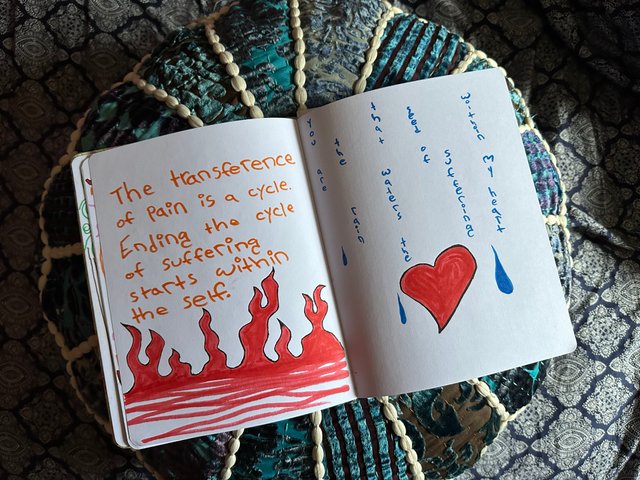 The transference
of Pain is a cycle.
Ending the cycle
of suffering
starts within
the self.
You are
the rain
that waters the
seed of
suffering
within My heart